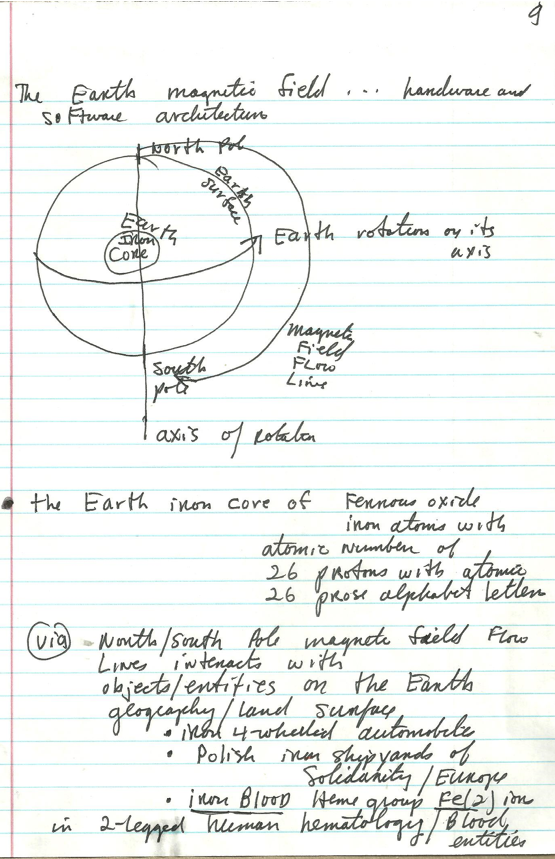 9
The Earth magnetic field ... hardware and
software architecture
North Pol
Earth
surface
Earth
Iron
Core
Earth rotation on its
axis
Magnetic
Field
Flow
Line
South
pole
axis of rotation
• the Earth iron core of Ferrous oxide
iron atoms with
atomic number of
26 protons with atomic
26 prose alphabet letters
via North/South Pole magnetic field Flow
Lines interacts with
objects/entities on the Earth
geography/land surface
• iron 4-wheeled automobiles
• Polish iron shipyards of
Solidarity/Europe
• iron Blood Heme group Fe(2) ion
in 2-legged human hematology/Blood
entities